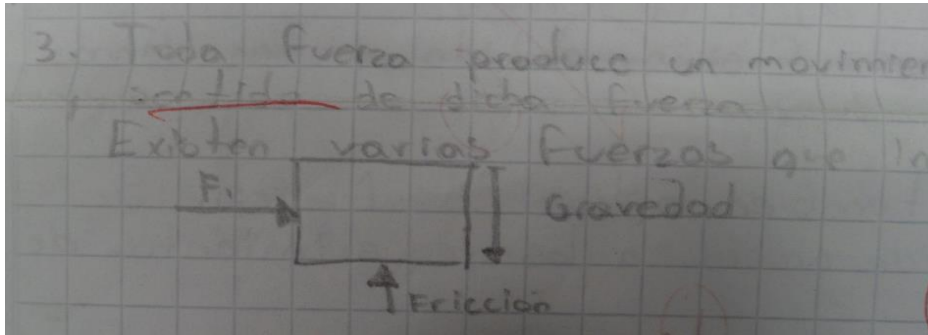 3. Toda fuerza produce un movimien
sentido de dicha fuerza
Existen varias fuerzas que in
F.
Gravedad
Friccion